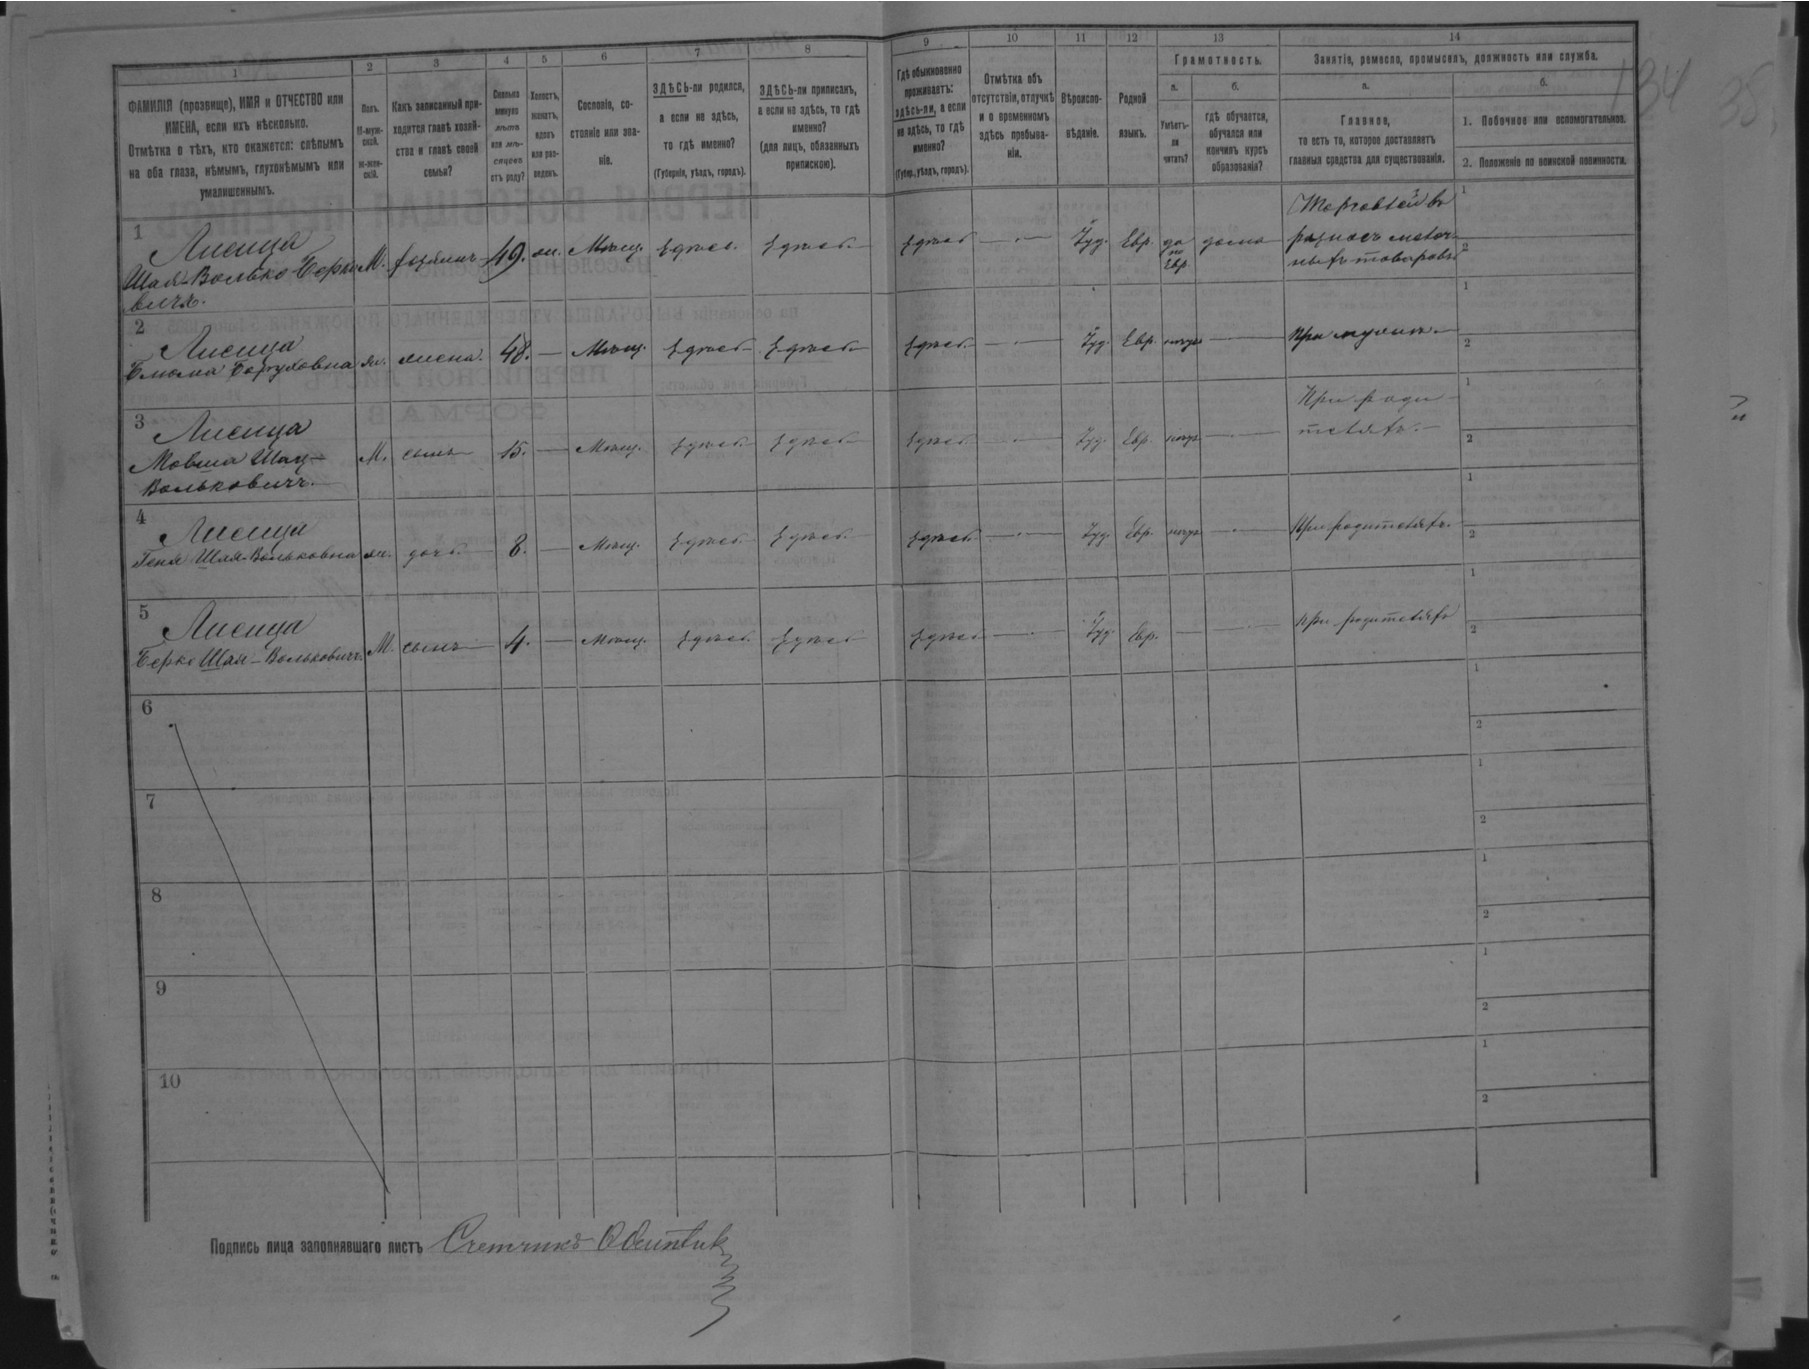 1 2 3 4 5 6 7 8 9 10 11 12 13 14
ФАМИЛІЯ (прозвище), ИМЯ и ОТЧЕСТВО или
ИМЕНА, если ихъ нѣсколько.
Отмѣтка о тѣхъ, кто окажется: слѣпымъ
на оба глаза, нѣмымъ, глухонѣмымъ или
умалишеннымъ.
Полъ.
М-муж-
ской.
ж-жен-
скій.
Какъ записанный при-
ходится главѣ хозяй-
ства и главѣ своей
семьи?
Сколько
минуло
лѣтъ
или мѣ-
сяцевъ
отъ роду?
Холостъ,
женатъ,
вдовъ
или раз-
веденъ.
Сословіе, со-
стояніе или зва-
ніе.
ЗДѢСЬ-ли родился,
а если не здѣсь,
то гдѣ именно?
(Губернія, уѣздъ, городъ).
ЗДѢСЬ-ли приписанъ,
а если не здѣсь, то гдѣ
именно?
(для лицъ, обязанныхъ
припискою).
Гдѣ обыкновенно
проживаетъ:
здѣсь-ли, а если
не здѣсь, то гдѣ
именно?
(Губер., уѣздъ, городъ).
Отмѣтка объ
отсутствіи, отлучкѣ
и о временномъ
здѣсь пребыва-
ніи.
Вѣроиспо-
вѣданіе.
Родной
языкъ.
Грамотность.
а.
Умѣетъ-
ли
читать?
б.
гдѣ обучается,
обучался или
кончилъ курсъ
образованія?
Занятіе, ремесло, промыселъ, должность или служба.
а.
Главное,
то есть то, которое доставляетъ
главныя средства для существованія.
б.
1. Побочное или вспомогательное.
2. Положеніе по воинской повинности.
134 35
1
Лисица
Шая-Волько Берко
вичъ.
М. хозяинъ 49. жн. Мѣщ. Здѣсь Здѣсь Здѣсь — Іуд. Евр. да по Евр. дома
Торговля въ
разносъ мелоч-
ныхъ товаровъ
1
2
2
Лисица
Боруховна
ж. жена. 48. — Мѣщ. Здѣсь Здѣсь Здѣсь — Іуд. Евр. — При мужѣ.
1
2
3
Лисица
Мовша Шая-
Вольковичъ.
М. сынъ 15. — Мѣщ. Здѣсь Здѣсь Здѣсь — Іуд. Евр. —
При роди-
теляхъ.
1
2
4
Лисица
Геня Шая-Вольковна ж. дочь 8. — Мѣщ. Здѣсь Здѣсь Здѣсь — Іуд. Евр. — При родителяхъ.
1
2
5
Лисица
Берко Шая-Вольковичъ М. сынъ 4. — Мѣщ. Здѣсь Здѣсь Здѣсь — Іуд. Евр. — — При родителяхъ
1
2
6
1
2
7
1
2
8
1
2
9
1
2
10
1
2
Подпись лица заполнявшаго листъ Счетчикъ